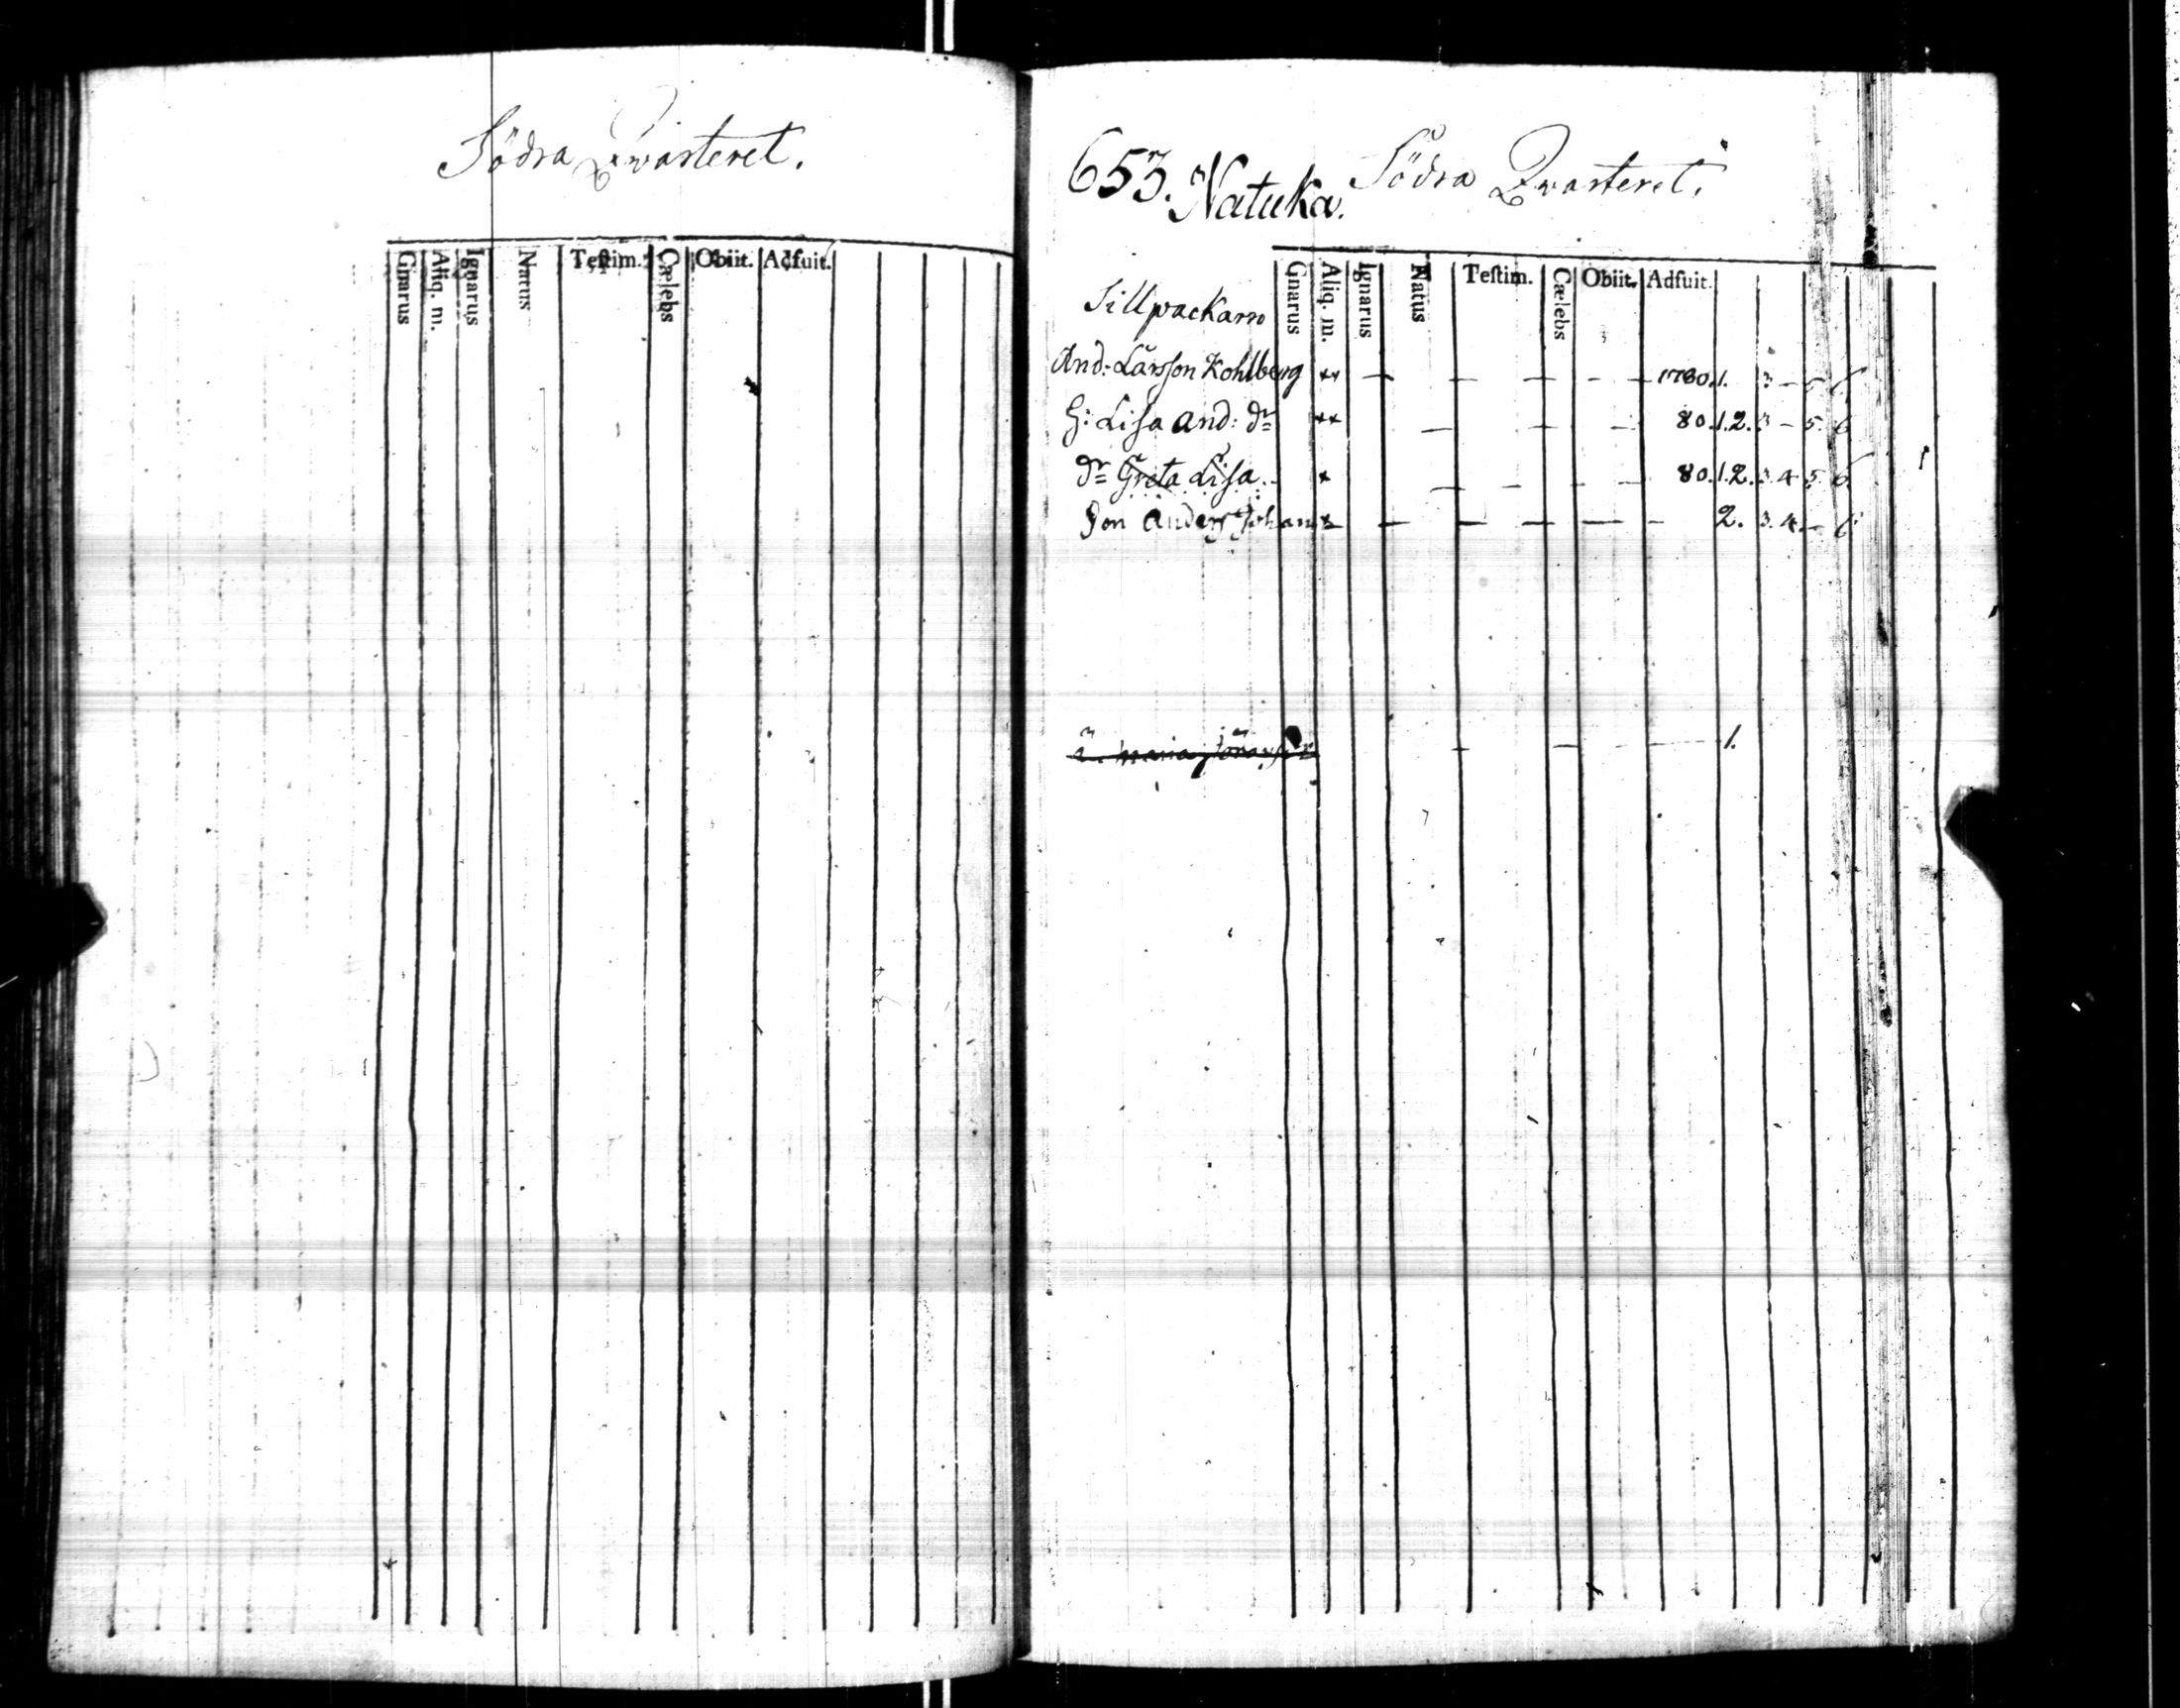 Södra Qwarteret.
Gnarus Aliq. m. Ignarus Natus Teſtim. Cælebs Obiit. Adfuit.
653. Natuka. Södra Qwarteret.
Gnarus Aliq. m. Ignarus Natus Teſtim. Cælebs Obiit. Adfuit.
Sillpackaren
And: Larsson Kohlberg ** — — — — — 1780. 1. 3 - 5 6
H: Lisa And: dr ** — — — 80. 1. 2. 3 - 5 6
dr Greta Lisa * — — — — 80. 1. 2. 3. 4 5 6
Son Anders Johan * — — — — — 2. 3. 4. - 6
Maria — — — — 1.